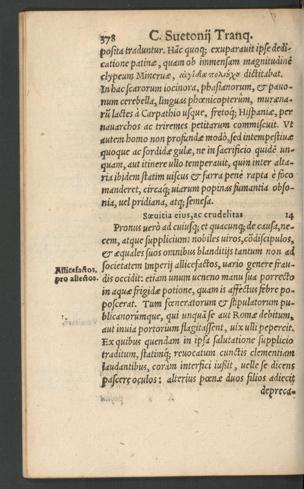 378 C. Suetonij Tranq.
posita traduntur. Hãc quoq; exuparauit ipse dedi-
catione patinæ, quam ob immensam magnitudinẽ
clypeum Mineruæ, αἰγίδα πολιούχου dictitabat.
In hac scarorum iocinora, phasianorum, & pauo-
num cerebella, linguas phœnicopterûm, muræna-
rũ lactes à Carpathio usque, fretoq; Hispaniæ, per
nauarchos ac triremes petitarum commiscuit. Vt
autem homo non profundæ modò, sed intempestiuæ
quoque ac sordidæ gulæ, ne in sacrificio quidẽ un-
quam, aut itinere ullo temperauit, quin inter alta-
ria ibidem statim uiscus & farra penè rapta è foco
manderet, circaq; uiarum popinas fumantia obso-
nia, uel pridiana, atq; semesa.
Sæuitia eius, ac crudelitas 14
Pronus uerò ad cuiusq; et quacunq; de causa, ne-
cem, atque supplicium: nobiles uiros, cõdiscipulos,
& æquales suos omnibus blanditijs tantum non ad
societatem Imperij allicefactos, uario genere frau-
Allicefactos,
pro allectos.
dis occidit: etiam unum ueneno manu sua porrecto
in aquæ frigidæ potione, quam is affectus febre po-
poscerat. Tum fœneratorum & stipulatorum pu-
blicanorúmque, qui unquã se aut Romæ debitum,
aut inuia portorium flagitassent, uix ulli pepercit.
Ex quibus quendam in ipsa salutatione supplicio
traditum, statimq; reuocatum cunctis clementiam
laudantibus, coràm interfici iussit, uelle se dicens
pascere oculos: alterius pœnæ duos filios adiecit
depreca-